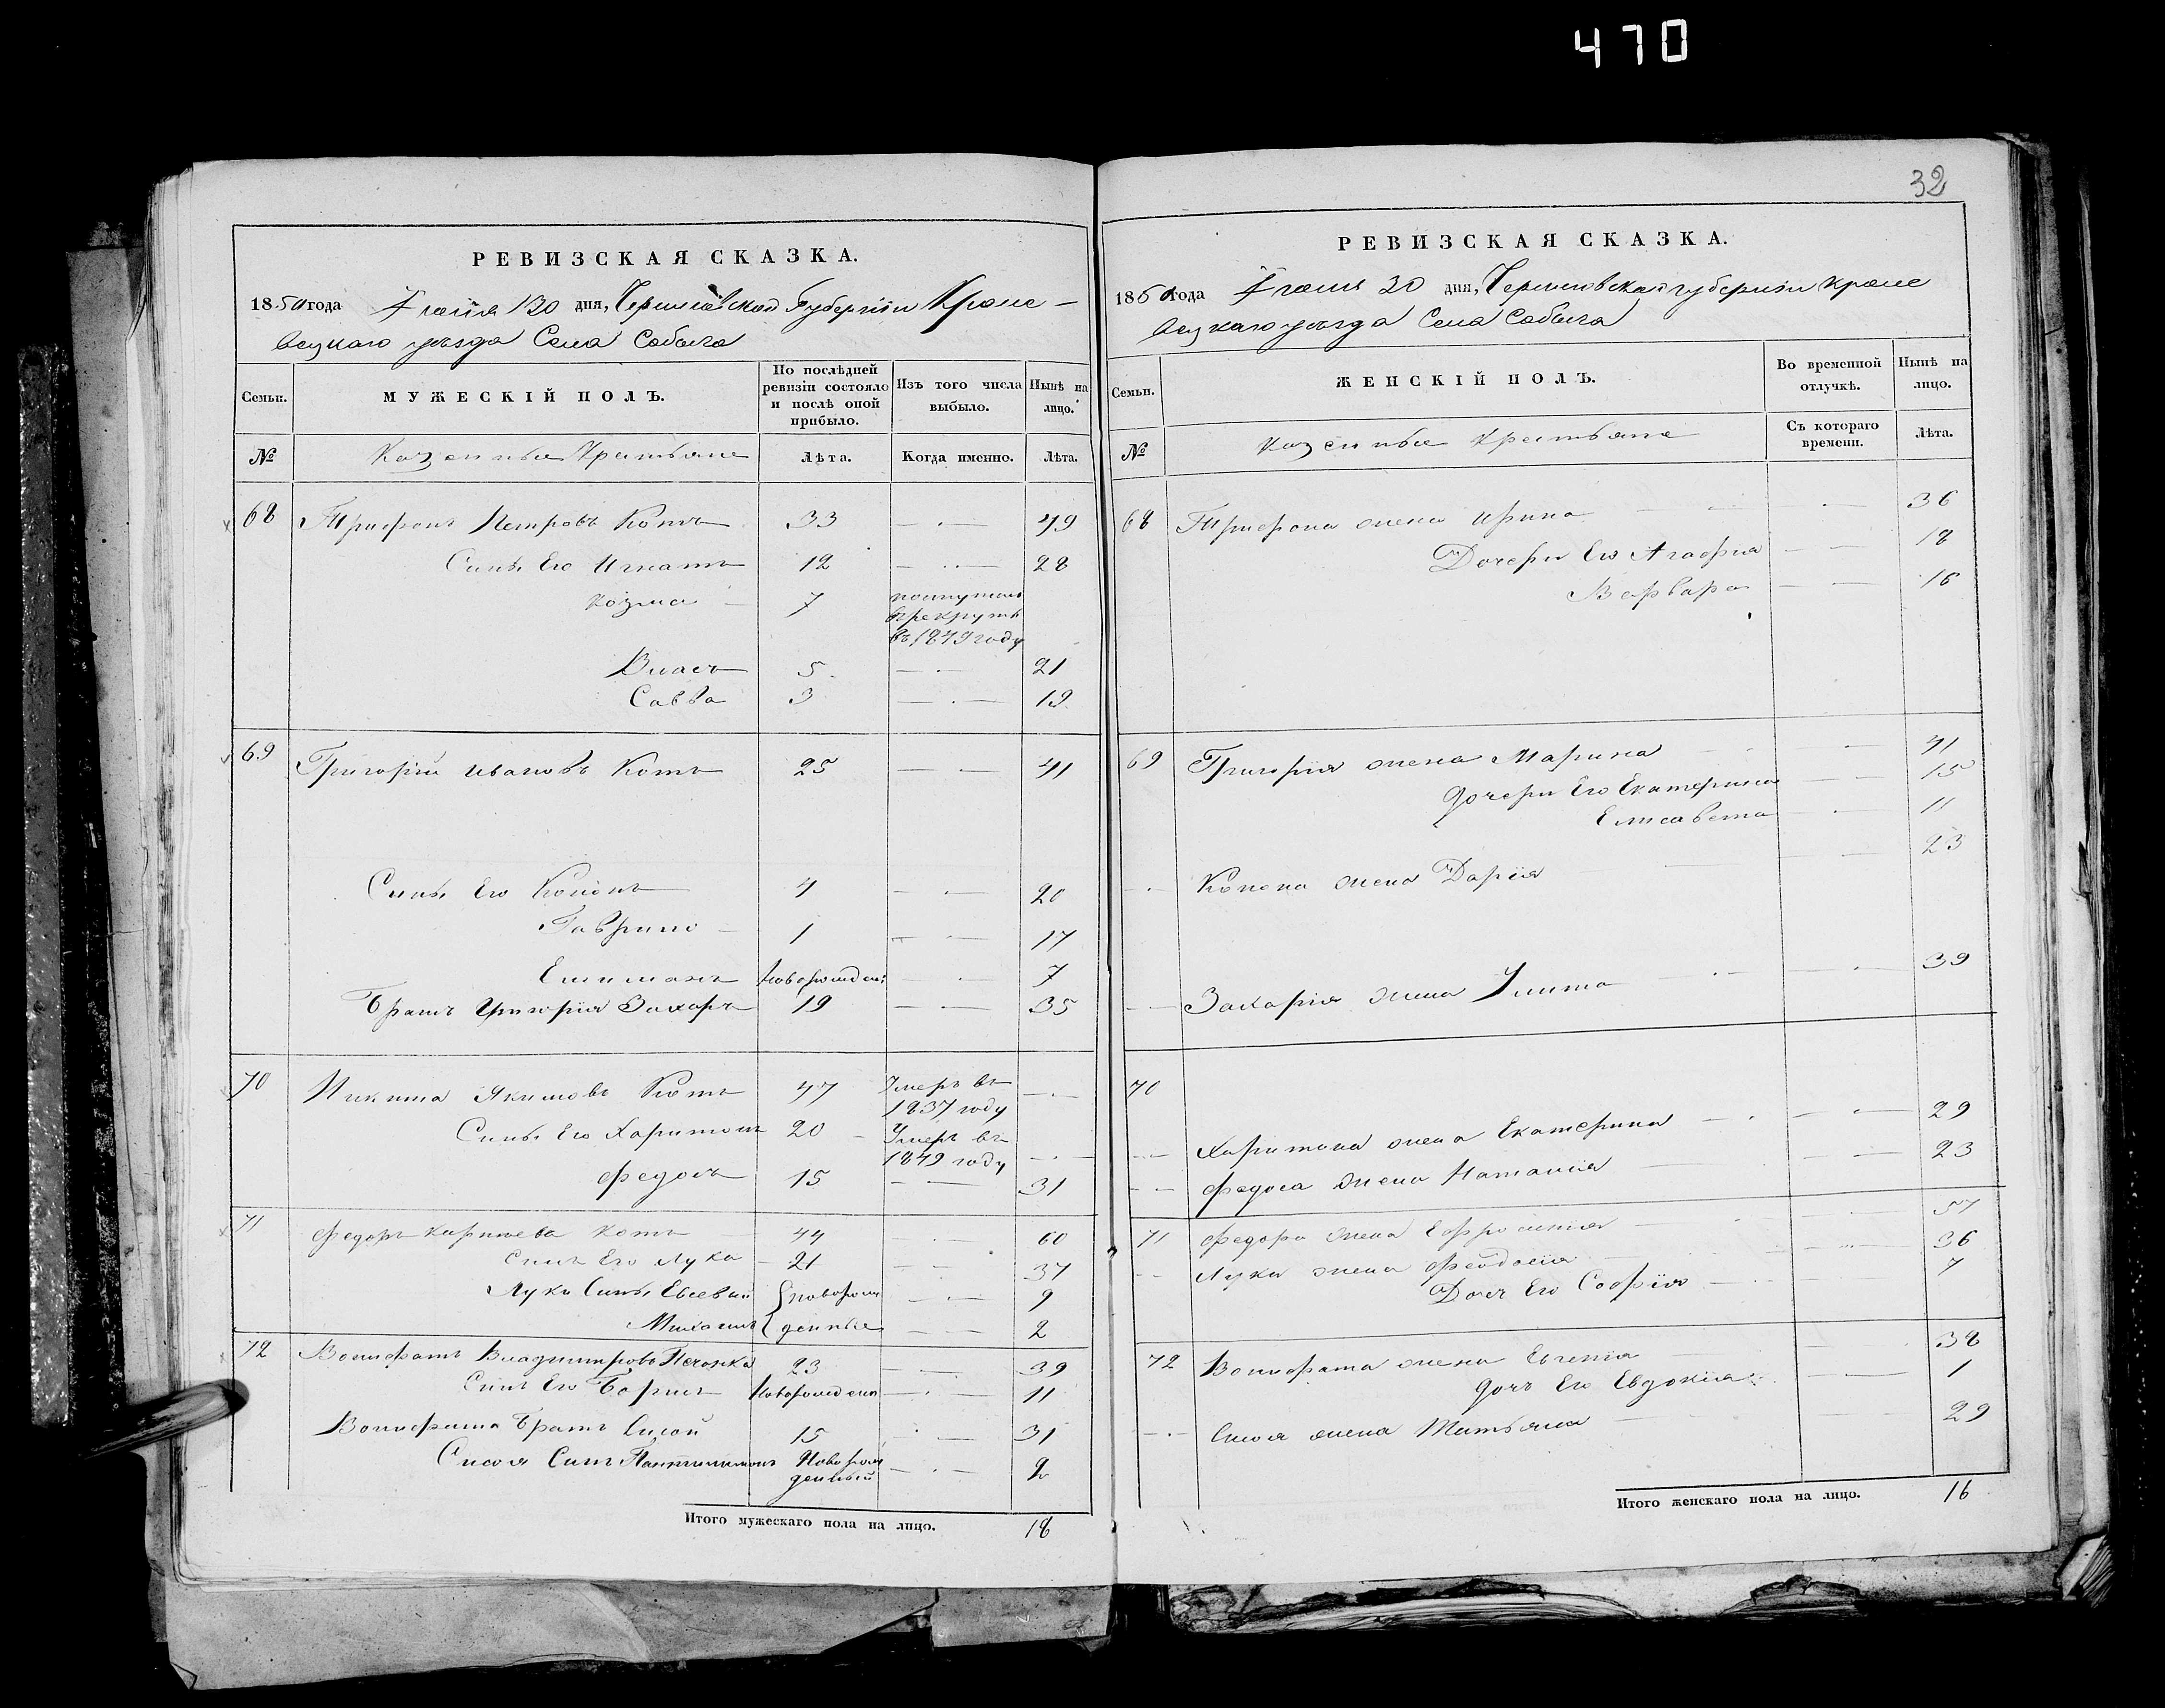 470
32
РЕВИЗСКАЯ СКАЗКА.
1850 года Іюля 30 дня, Черниговской Губерніи Кроле-
вецкаго уезда Села Собыча
Семьи. МУЖЕСКІЙ ПОЛЪ. По послѣдней ревизіи состояло и послѣ оной прибыло. Изъ того числа выбыло. Нынѣ на лицо.
№ Казенные Крестьяне Лѣта. Когда именно. Лѣта.
68 Трифонъ Петровъ Котъ 33 — 49
Сынъ Его Игнатъ 12 — 28
Козма 7 поступилъ в рекруты въ 1849 году
Власъ 5 — 21
Савва 3 — 19
69 Григорій Ивановъ Котъ 25 — 41
Сынъ Его Кононъ 4 — 20
Гаврило 1 — 17
новорожден 7
Братъ Григорія Захаръ 19 — 35
70 Никита Якимовъ Котъ 47 Умеръ въ 1837 году —
Сынъ Его Харитонъ 20 Умеръ въ 1849 году —
Федосъ 15 — 31
71 Федоръ Котъ 44 — 60
Сынъ Его Лука 21 — 37
Луки Сынъ Евсевій новорож 9
Михаилъ денные 2
72 Вонифатъ Владимировъ 23 — 39
Сынъ Его Борисъ Новорожден — 11
Вонифата Братъ Сисой 15 — 31
Сисоя Сынъ Пантилимонъ Новорож денный — 2
Итого мужескаго пола на лицо. 18
РЕВИЗСКАЯ СКАЗКА.
1850 года 30 дня, Черниговской губерніи Кроле
вецкаго уезда Села Собыча
Семьи. ЖЕНСКІЙ ПОЛЪ. Во временной отлучкѣ. Нынѣ на лицо.
№ Казенные Крестьяне Съ котораго времени. Лѣта.
68 Трифона жена Ирина — 36
Дочери Его Агафия — 18
Варвара — 16
69 Григорія жена Марина — 41
Дочери Его Екатерина — 15
Елисавета — 11
Конона жена Дарія — 23
Захарія жена Улита — 39
70
Харитона жена Екатерина — 29
Федоса жена Наталія — 23
71 Федора жена Ефросинія — 57
Луки жена Феодосія — 36
Дочъ Его Софія — 7
72 Вонифата жена Евгенія — 38
дочъ Его Евдокія — 1
Сисоя жена Татьяна — 29
Итого женскаго пола на лицо. 16